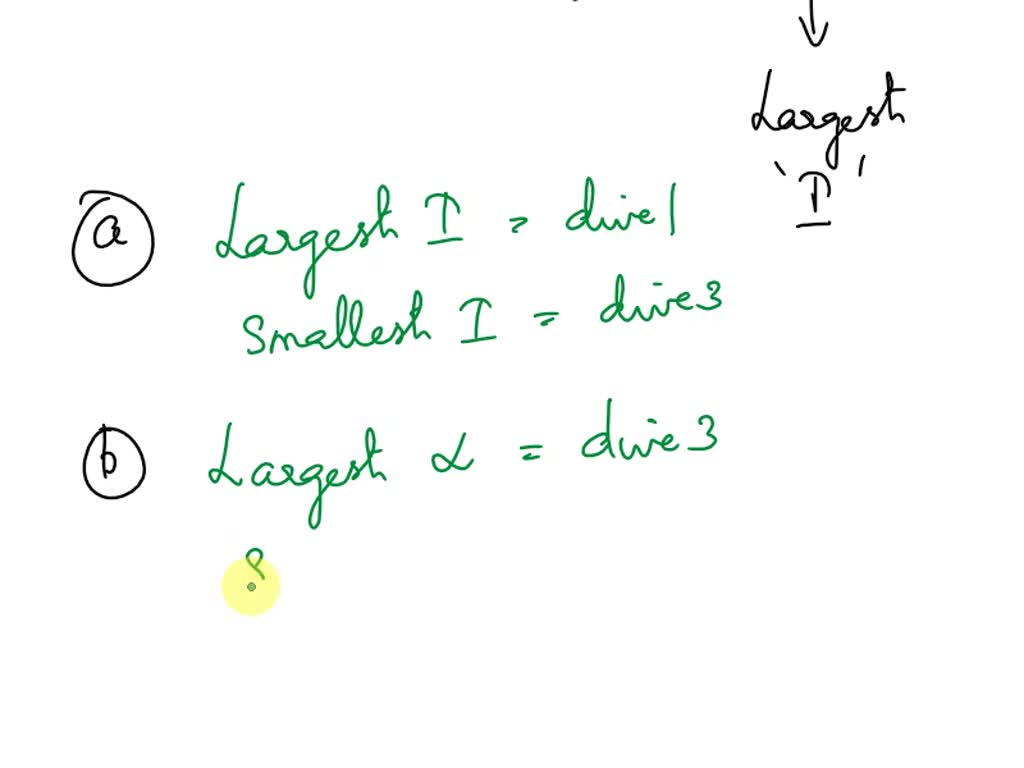 ↓
Largest
'I'
a Largest I = dive1
Smallest I = dive3
b Largest α = dive3